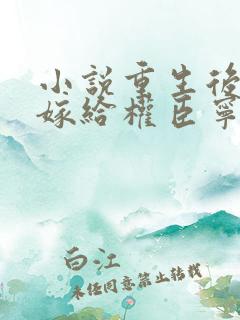 小說重生後
嫁給權臣寧
白江
未經同意禁止轉載